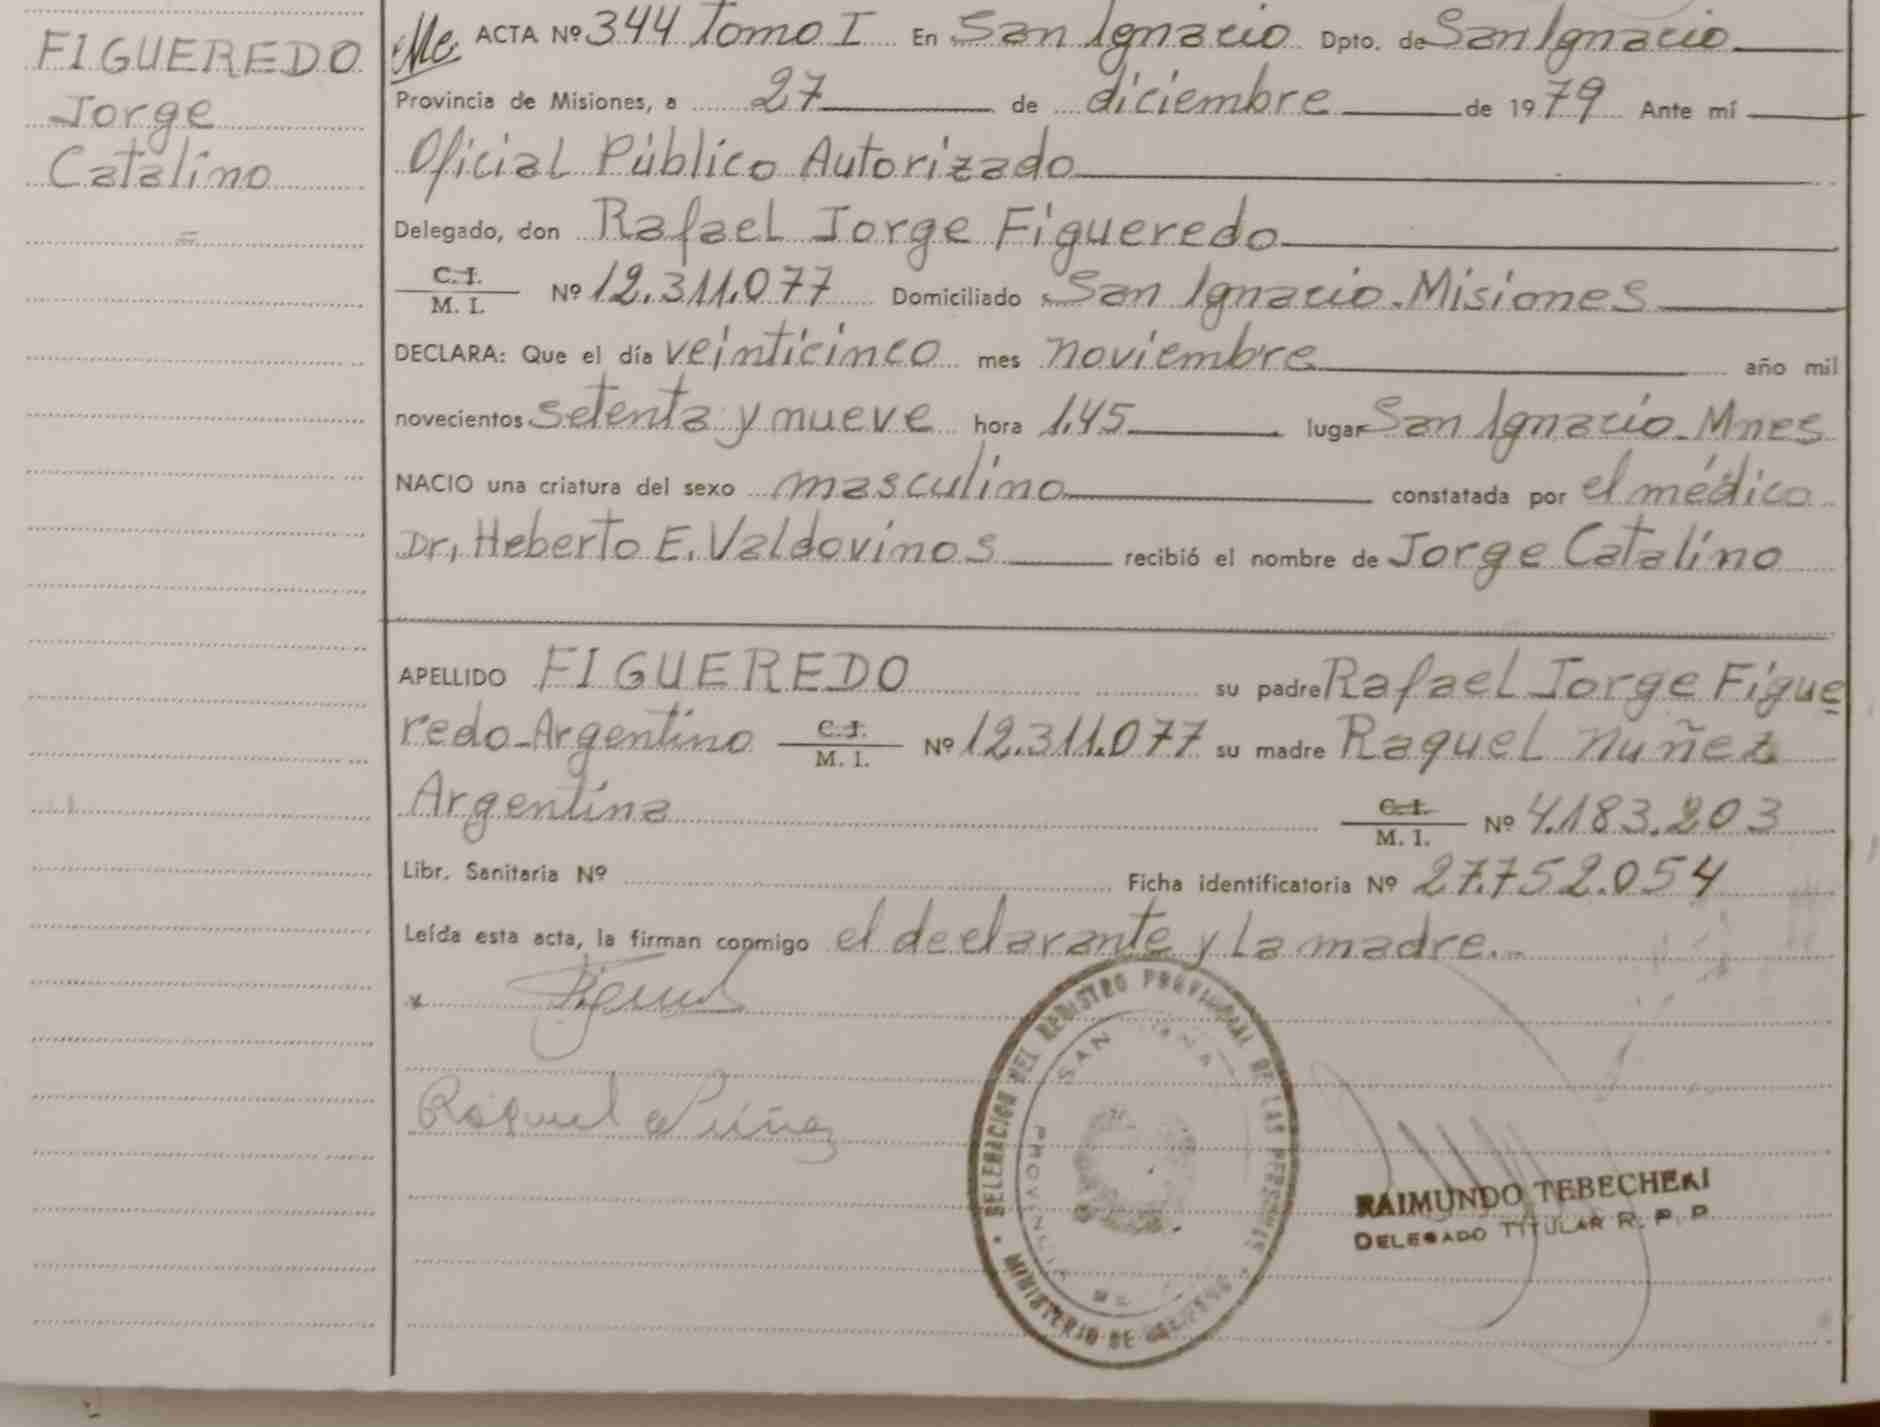 FIGUEREDO
Jorge
Catalino
=
ACTA Nº 344 Tomo I En San Ignacio Dpto. de San Ignacio
Provincia de Misiones, a 27 de diciembre de 1979 Ante mí
Oficial Público Autorizado
Delegado, don Rafael Jorge Figueredo
C.I.
M. I. Nº 12.311.077 Domiciliado San Ignacio. Misiones
DECLARA: Que el día veinticinco mes noviembre año mil
novecientos setenta y nueve hora 1.45 lugar San Ignacio. Mnes
NACIO una criatura del sexo masculino constatada por el médico
Dr. Heberto E. Valdovinos recibió el nombre de Jorge Catalino
APELLIDO FIGUEREDO su padre Rafael Jorge Figue
redo-Argentino C.I. M. I. Nº 12.311.077 su madre Raquel Nuñez
Argentina C.I. M. I. Nº 4.183.203
Libr. Sanitaria Nº Ficha identificatoria Nº 27.752.054
Leída esta acta, la firman conmigo el declarante y la madre.-
x
Raquel Núñez
DELEGACION DEL REGISTRO PROVINCIAL DE LAS PERSONAS
MINISTERIO DE
SAN IGNA
PROVINCIA
RAIMUNDO TEBECHERI
DELEGADO TITULAR R. P. P.